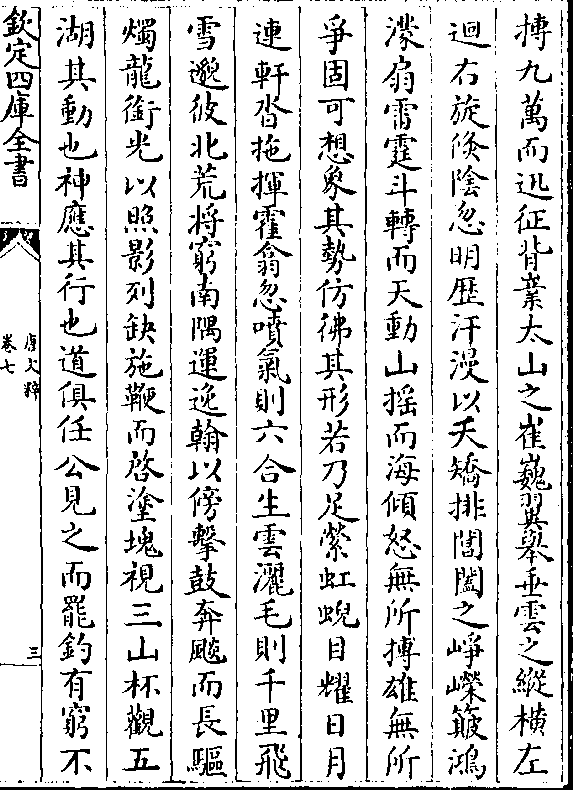 搏九萬而迅征背業太山之崔巍翼舉垂雲之縱橫左
迴右旋倐陰忽明歴汗漫以夭矯排閶闔之崢嶸簸鴻
濛扇雷霆斗轉而天動山揺而海傾怒無所搏雄無所
爭固可想象其勢仿彿其形若乃足縈虹蜺目耀日月
連軒沓拖揮霍翕忽噴氣則六合生雲灑毛則千里飛
雪邈彼北荒将窮南隅運逸翰以傍擊鼓奔飈而長驅
燭龍銜光以照影列缺施鞭而啓塗塊視三山杯觀五
湖其動也神應其行也道俱任公見之而罷釣有窮不
欽定四庫全書
唐文粹
卷七
三